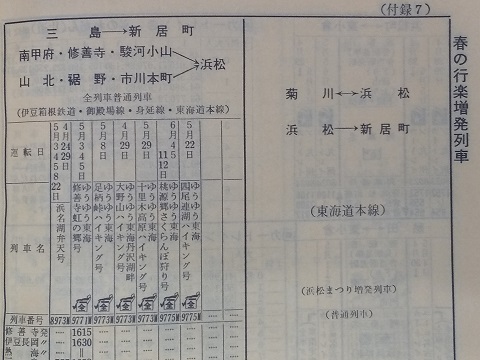 (付録7)
春の行楽増発列車
三島→新居町
南甲府・修善寺・駿河小山
山北・裾野・市川本町
→浜松
全列車普通列車
(伊豆箱根鉄道・御殿場線・身延線・東海道本線)
菊川↔浜松
浜松→新居町
(東海道本線)
(浜松まつり増発列車)
(普通列車)
運転日
列車名
浜名湖弁天号
ゆうゆう東海
修善寺虹の郷号
ゆうゆう東海
足柄峠ハイキング号
ゆうゆう東海丹沢湖畔
大野山ハイキング号
ゆうゆう東海
十里木高原ハイキング号
ゆうゆう東海
桃源郷さくらんぼ狩り号
ゆうゆう東海
四尾連湖ハイキング号
列車番号 8973M 9771M 9773M 9773M 9777M 9775M 9775M
修善寺発 1615
伊豆長岡〃 1630